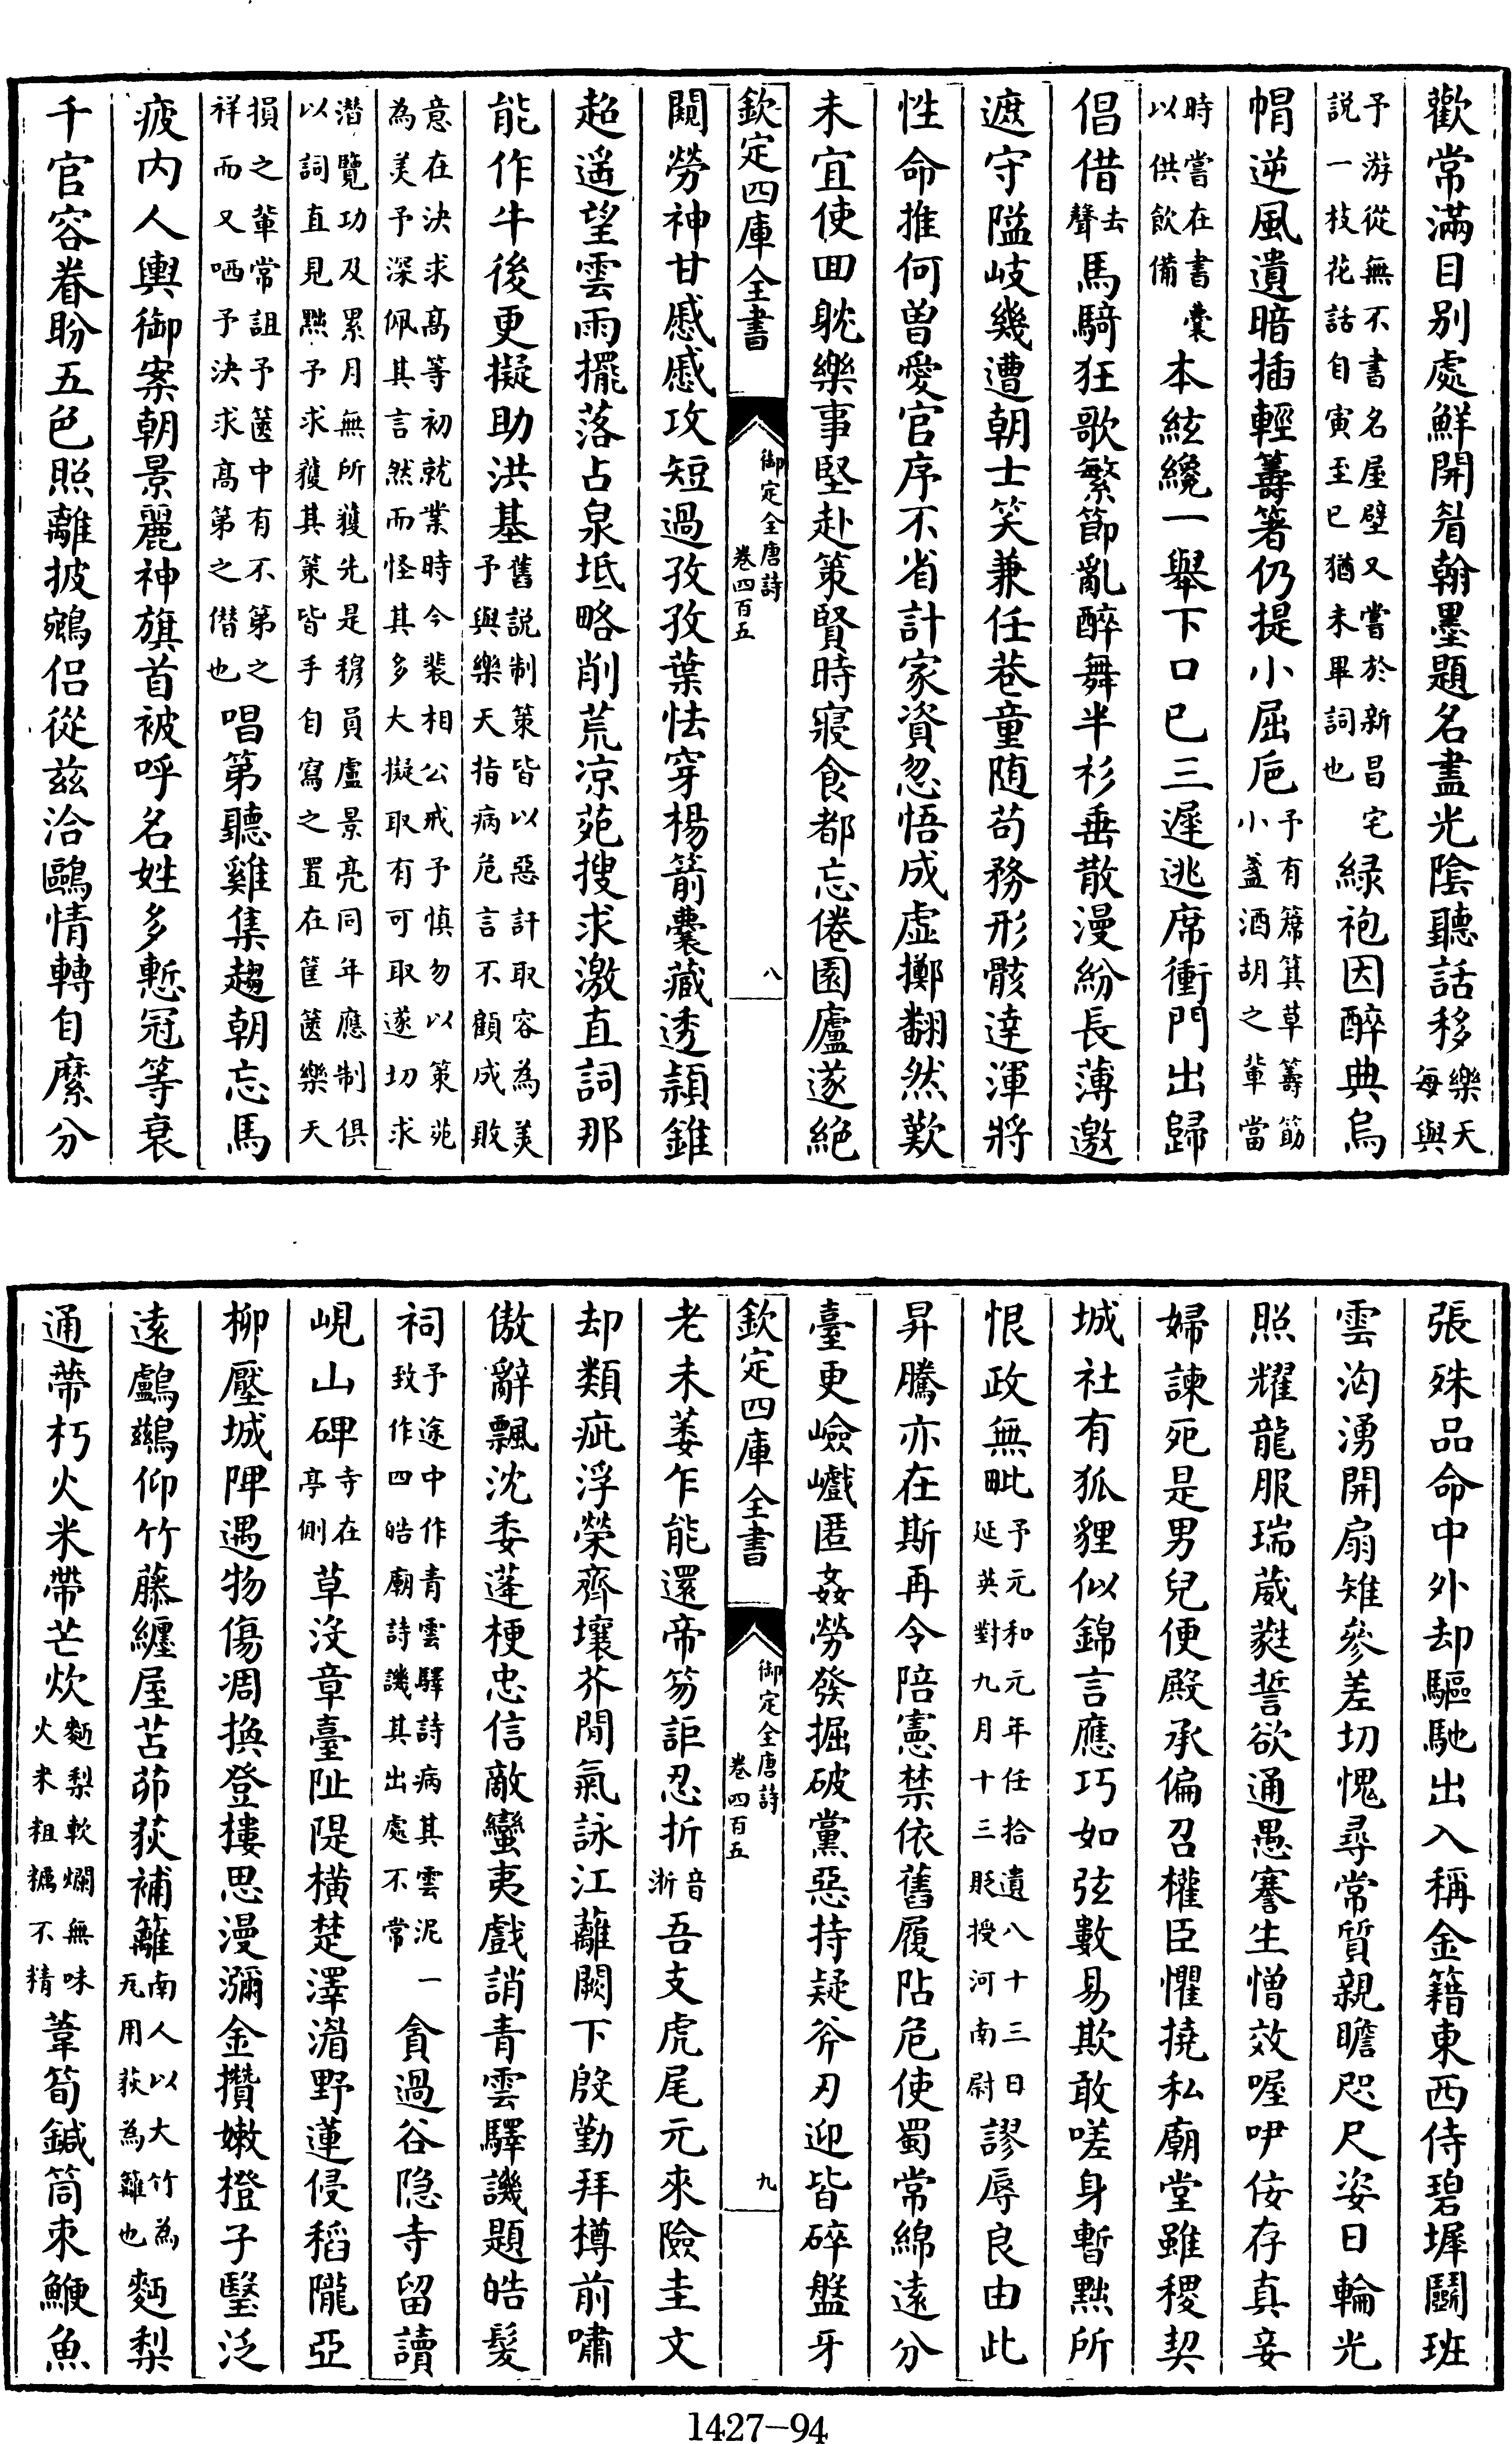 歡常滿目别處鮮開眉翰墨題名盡光隂聽話移樂天每與
予游從無不書名屋壁又嘗於新昌宅説一枝花話自寅至巳猶未畢詞也緑袍因醉典烏
帽逆風遺暗插輕籌箸仍提小屈巵予有篣箕草籌筯小盞酒胡之軰當
時嘗在書囊以供飲備本絃纔一舉下口已三遲逃席衝門出歸
倡借去聲馬騎狂歌繁節亂醉舞半衫垂散漫紛長薄邀
遮守隘岐幾遭朝士笑兼任巷童随苟務形骸逹渾將
性命推何曽愛官序不省計家資忽悟成虚擲翻然歎
未宜使回躭樂事堅赴策賢時寢食都忘倦園廬遂絶
欽定四庫全書 御定全唐詩卷四百五 八
闚勞神甘慼慼攻短過孜孜葉怯穿楊箭囊藏透潁錐
超遥望雲雨擺落占泉坻略削荒凉苑搜求激直詞那
能作牛後更擬助洪基舊説制策皆以惡訐取容為美予與樂天指病危言不顧成敗
意在決求髙等初就業時今裴相公戒予慎勿以策苑為美予深佩其言然而怪其多大擬取有可取遂切求
潛覽功及累月無所獲先是穆員盧景亮同年應制俱以詞直見黜予求獲其策皆手自寫之置在筐篋樂天
損之軰常詛予篋中有不第之祥而又哂予決求髙第之僭也唱第聽雞集趨朝忘馬
疲内人輿御案朝景麗神旗首被呼名姓多慙冠等衰
千官容眷盼五色照離披鵷侣從兹洽鷗情轉自縻分
張殊品命中外却驅馳出入稱金籍東西侍碧墀鬬班
雲洶湧開扇雉參差切愧尋常質親瞻咫尺姿日輪光
照耀龍服瑞葳蕤誓欲通愚謇生憎效喔咿佞存真妾
婦諫死是男兒便殿承偏召權臣懼撓私廟堂雖稷契
城社有狐貍似錦言應巧如弦數易欺敢嗟身暫黜所
恨政無毗予元和元年任拾遺八十三日延英對九月十三貶授河南尉謬辱良由此
昇騰亦在斯再令陪憲禁依舊履阽危使蜀常綿遠分
臺更嶮巇匿姦勞發掘破黨惡持疑斧刃迎皆碎盤牙
欽定四庫全書 御定全唐詩卷四百五 九
老未萎乍能還帝笏詎忍折音淅吾支虎尾元來險圭文
却類疵浮榮齊壤芥閒氣詠江蘺闕下殷勤拜樽前嘯
傲辭飄沈委蓬梗忠信敵蠻夷戲誚青雲驛譏題皓髮
祠予途中作青雲驛詩病其雲泥一致作四皓廟詩譏其出處不常貪過谷隐寺留讀
峴山碑寺在亭側草没章臺阯隄横楚澤湄野蓮侵稻隴亞
柳壓城陴遇物傷凋換登樓思漫瀰金攢嫩橙子瑿泛
遠鸕鷀仰竹藤纏屋苫茆荻補籬南人以大竹為瓦用荻為籬也麪梨
通蔕朽火米帶芒炊麪梨軟爛無味火米粗糲不精葦筍鍼筒束鯾魚
1427-94